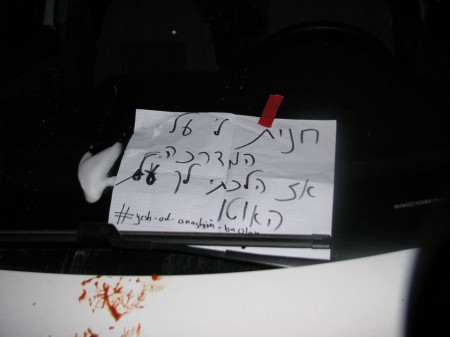 חנית לי על
המדרכה
אז הלכתי לך על
האוטו
#yesh-od-anashim-baolam